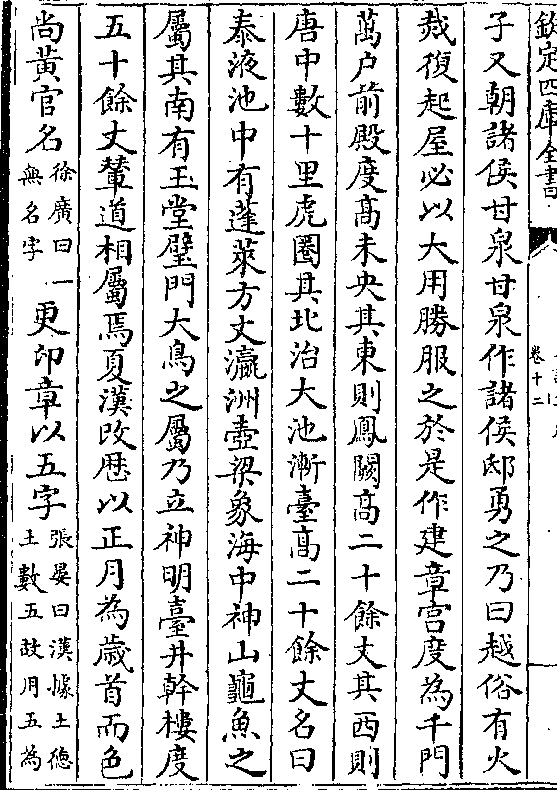 欽定四庫全書
卷十二
子又朝諸侯甘泉甘泉作諸侯邸勇之乃曰越俗有火
烖復起屋必以大用勝服之於是作建章宫度為千門
萬户前殿度髙未央其東則鳳闕髙二十餘丈其西則
唐中數十里虎圏其北治大池漸臺髙二十餘丈名曰
泰液池中有蓬萊方丈瀛洲壺梁象海中神山龜魚之
屬其南有玉堂璧門大鳥之屬乃立神明臺井幹樓度
五十餘丈輦道相屬焉夏漢改厯以正月為歳首而色
尚黄官名徐廣曰一無名字更印章以五字張晏曰漢據土徳土數五故用五為